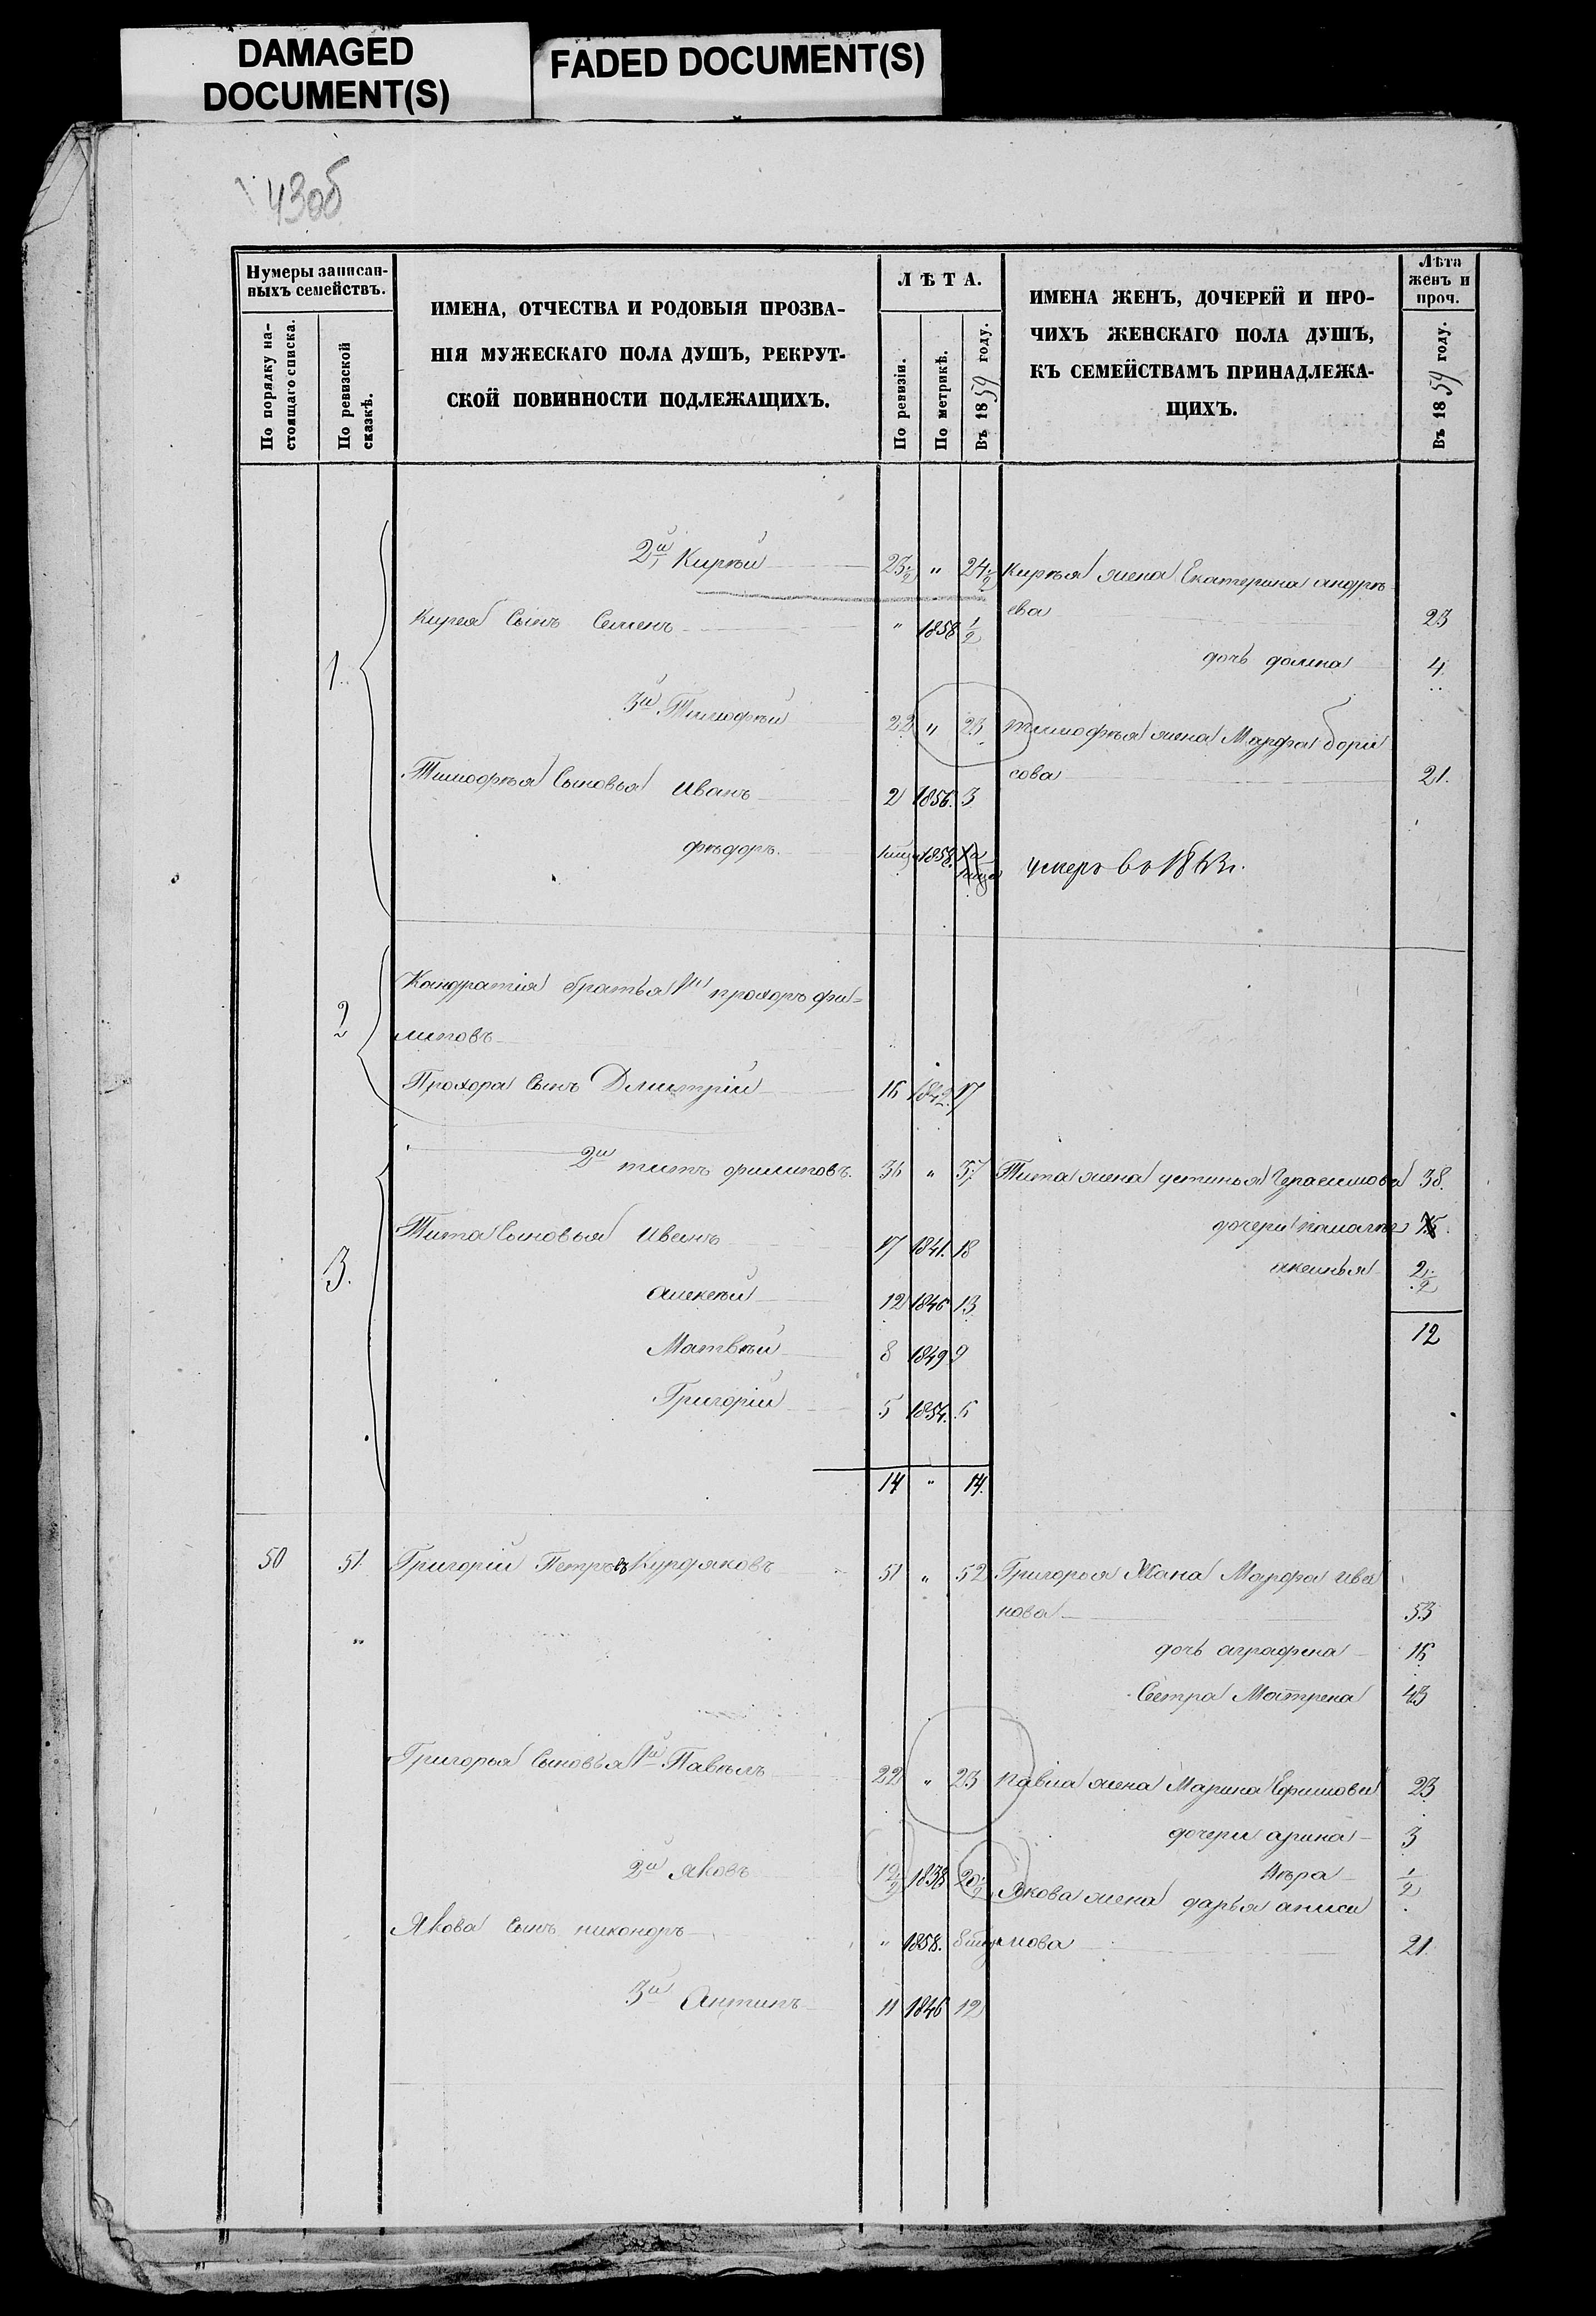 DAMAGED
DOCUMENT(S)
FADED DOCUMENT(S)
43об
Нумеры записан-
ныхъ семействъ.
По порядку на-
стоящаго списка.
По ревизской
сказкѣ.
ИМЕНА, ОТЧЕСТВА И РОДОВЫЯ ПРОЗВА-
НІЯ МУЖЕСКАГО ПОЛА ДУШЪ, РЕКРУТ-
СКОЙ ПОВИННОСТИ ПОДЛЕЖАЩИХЪ.
ЛѢТА.
По ревизіи.
По метрикѣ.
Въ 1859 году.
ИМЕНА ЖЕНЪ, ДОЧЕРЕЙ И ПРО-
ЧИХЪ ЖЕНСКАГО ПОЛА ДУШЪ,
КЪ СЕМЕЙСТВАМЪ ПРИНАДЛЕЖА-
ЩИХЪ.
Лѣта
женъ и
проч.
Въ 1859 году.
1.
2й Кирѣй 23½ „ 24½ Кирѣя жена Екатерина андрѣ
ева 23
Кирея Сынъ Семенъ „ 1858 ½
дочь домна 4
3й Тимофѣй 22 „ 23 тимофѣя жена Марфа бори
сова 21.
Тимофѣя Сыновья иванъ 2 1856. 3
фѣдоръ. 1858. умеръ во 1863г.
2
Кондратія братья 1й прохоръ фи-
липовъ
Прохора Сынъ Дмитрій 16 1842. 17
3.
2й титъ филиповъ. 36 „ 37 Тита жена устинья Герасимова 38.
Тита Сыновья иванъ 17 1841. 18
дочери
аксинья 2½
алексѣй 12 1846 13
12
Матвѣй 8 1849 9
Григорій 5 1854. 6
14 „ 14.
50 51 Григорій Петровъ Курдяковъ 51 „ 52 Григорья Жана Марфа ива
нова 53
дочь аграфена 16
Сестра Матрена 43
Григорья Сыновья 1й Павѣлъ 22 „ 23 павла жена Марина Ефимова 23
дочери арина 3
Вѣра ½
2й яковъ 19½ 1838 20½ Якова жена дарья аниси
мова 21.
Якова Сынъ никоноръ „ 1858.
3й Антипъ 11 1846 12